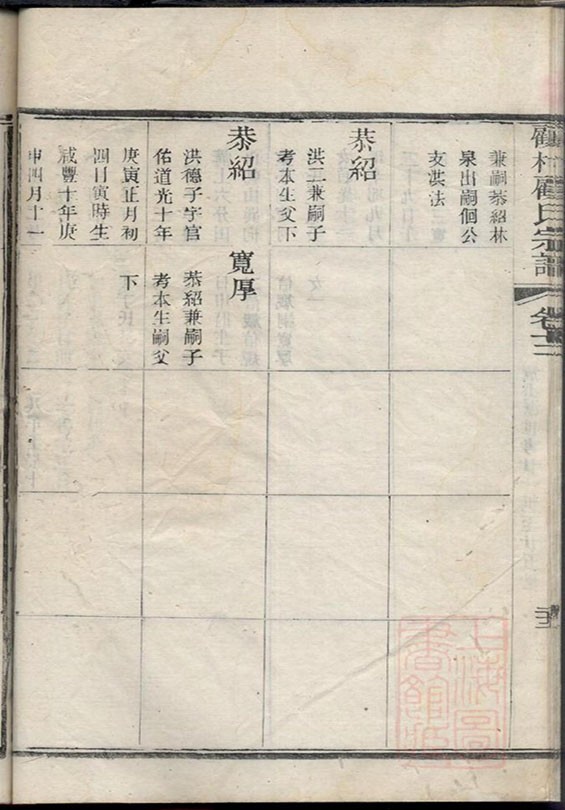 顧村顧氏宗譜
卷十二
兼嗣恭紹林
泉出嗣佪公
支洪法
恭紹
洪二兼嗣子
考本生父下
恭紹
洪德子字官
佑道光十年
庚寅正月初
四日寅時生
咸豐十年庚
申四月十一
寬厚
恭紹兼嗣子
考本生嗣父
下
上海圖
書館藏